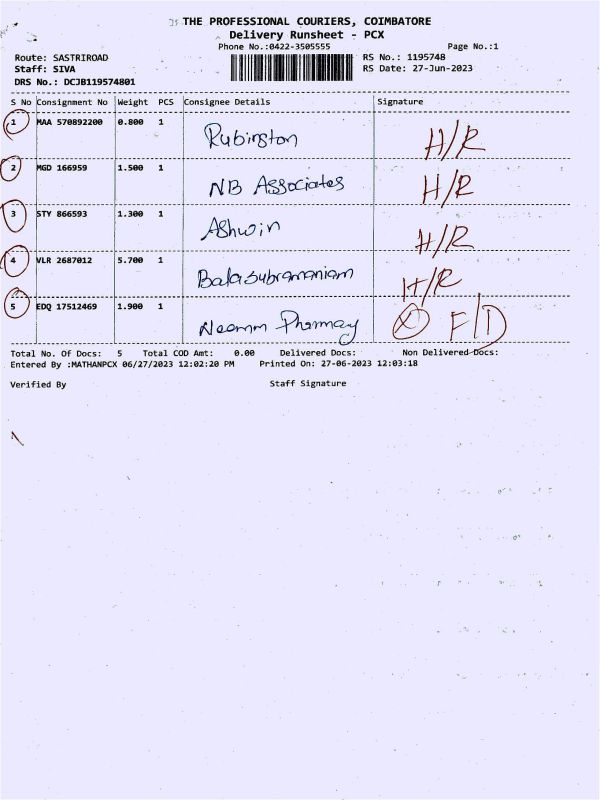 THE PROFESSIONAL COURIERS, COIMBATORE
Delivery Runsheet - PCX
Phone No.:0422-3505555 Page No.:1
Route: SASTRIROAD RS No.: 1195748
Staff: SIVA RS Date: 27-Jun-2023
DRS No.: DCJB119574801
S No Consignment No Weight PCS Consignee Details Signature
1 MAA 570892200 0.800 1 Rubington H/R
2 MGD 166959 1.500 1 NB Associates H/R
3 STY 866593 1.300 1 Ashwin H/R
4 VLR 2687012 5.700 1 Balasubramaniam H/R
5 EDQ 17512469 1.900 1 F/D
Total No. Of Docs: 5 Total COD Amt: 0.00 Delivered Docs: Non Delivered Docs:
Entered By :MATHANPCX 06/27/2023 12:02:20 PM Printed On: 27-06-2023 12:03:18
Verified By Staff Signature